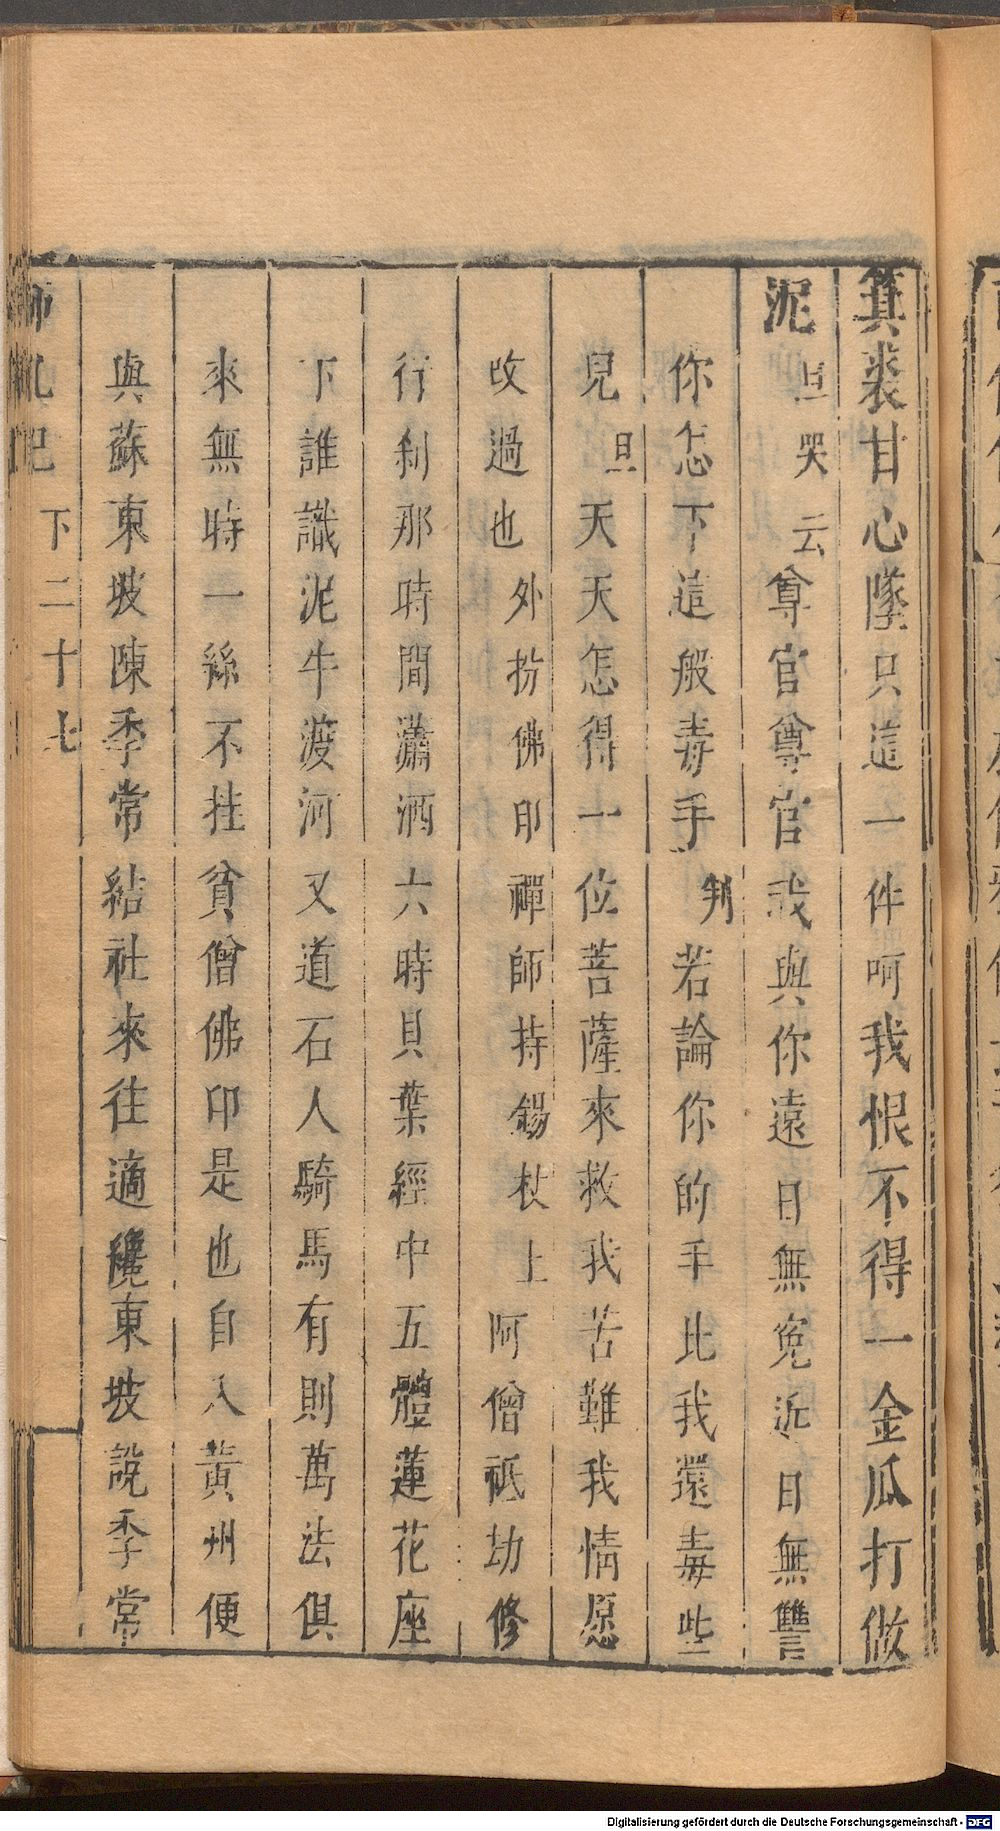 箕裘甘心墜只這一件呵我恨不得一金瓜打做
泥旦哭云尊官尊官我與你遠日無寃近日無讐
你怎下這般毒手判若論你的手比我還毒些
兒旦天天怎得一位菩薩來救我苦難我情愿
改過也外扮佛印禪師持錫杖上阿僧祗劫修
行刹那時間瀟洒六時貝葉經中五體蓮花座
下誰識泥牛渡河又道石人騎馬有則萬法俱
來無時一絲不挂貧僧佛印是也自入黃州便
與蘇東坡陳季常結社來往適纔東坡說季常
師吼記 下二十七
Digitalisierung gefördert durch die Deutsche Forschungsgemeinschaft - DFG